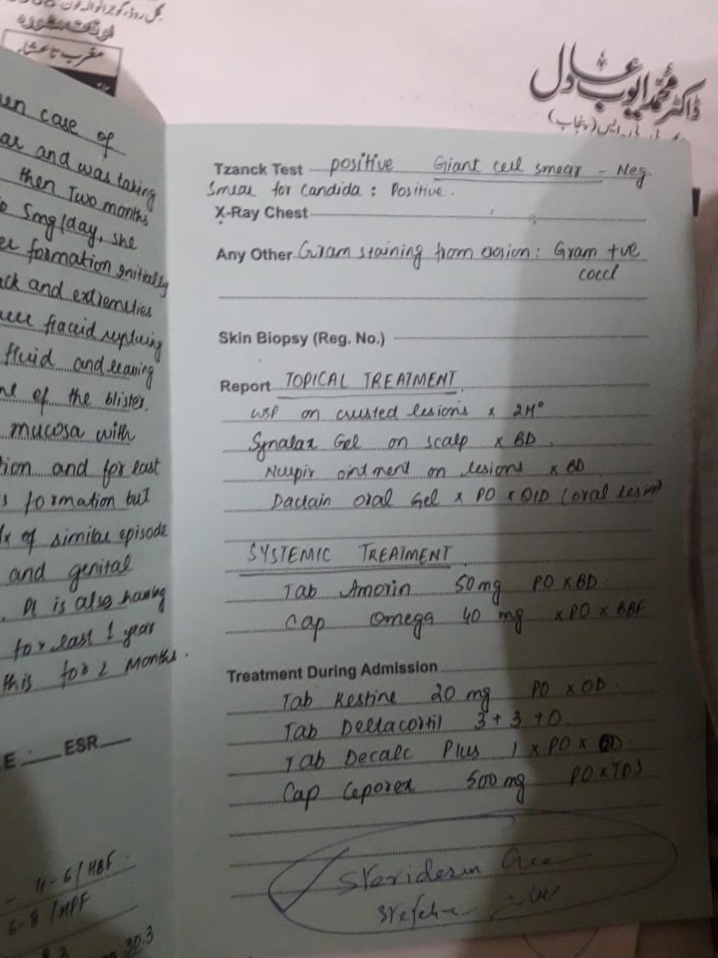 اوقات مشورہ
مغرب تا عشاء
ڈاکٹر محمد ایوب عادل
(پنجاب)
en case of
and was taking
then Two months
5mg/day, she
formation initially
ck and extremities
flacid repturing
fluid and leaving
of the blister.
mucosa with
tion and for last
formation but
of similar episode
and genital
. Pt is also having
for last 1 year
this for 2 Months.
E ESR
4-6/HPF
6-8/HPF
30.3
Tzanck Test positive Giant cell smear - Neg.
Smear for Candida : Positive.
X-Ray Chest
Any Other Gram staining from erosion : Gram +ve
cocci
Skin Biopsy (Reg. No.)
Report TOPICAL TREATMENT
WSP on crusted lesions x 2H°
Synalar Gel on scalp x BD
ointment on lesions x BD
Dactain oral Gel x PO x QID (oral lesion)
SYSTEMIC TREATMENT
Tab 50mg PO x BD
Cap Omega 40 mg x PO x BBF
Treatment During Admission
Tab Restine 20 mg PO x OD
Tab Deltacortil 3 + 3 + 0
Tab Decalc Plus 1 x PO x OD
Cap Ceporex 500 mg PO x TDS